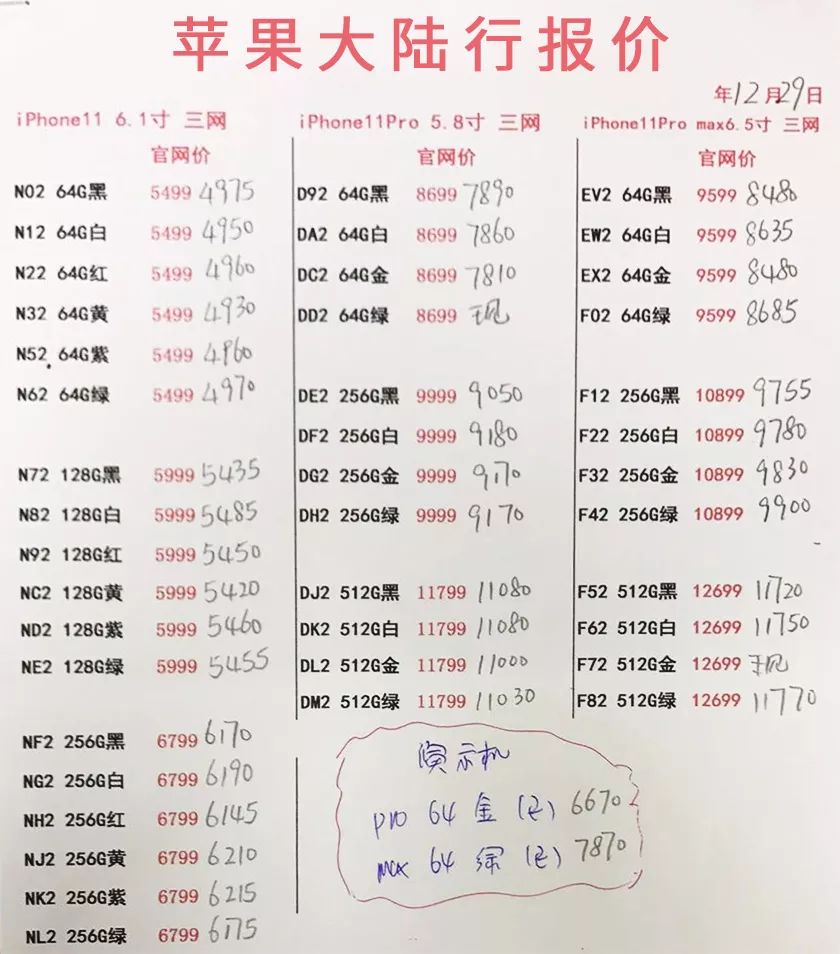 苹果大陆行报价
年12月29日
iPhone11 6.1寸 三网
官网价
N02 64G黑 5499 4975
N12 64G白 5499 4950
N22 64G红 5499 4960
N32 64G黄 5499 4930
N52 64G紫 5499 4960
N62 64G绿 5499 4970
N72 128G黑 5999 5435
N82 128G白 5999 5485
N92 128G红 5999 5450
NC2 128G黄 5999 5420
ND2 128G紫 5999 5460
NE2 128G绿 5999 5455
NF2 256G黑 6799 6170
NG2 256G白 6799 6190
NH2 256G红 6799 6145
NJ2 256G黄 6799 6210
NK2 256G紫 6799 6215
NL2 256G绿 6799 6175
iPhone11Pro 5.8寸 三网
官网价
D92 64G黑 8699 7890
DA2 64G白 8699 7860
DC2 64G金 8699 7810
DD2 64G绿 8699 现
DE2 256G黑 9999 9050
DF2 256G白 9999 9180
DG2 256G金 9999 9170
DH2 256G绿 9999 9170
DJ2 512G黑 11799 11080
DK2 512G白 11799 11080
DL2 512G金 11799 11000
DM2 512G绿 11799 11030
iPhone11Pro max6.5寸 三网
官网价
EV2 64G黑 9599 8480
EW2 64G白 9599 8635
EX2 64G金 9599 8480
F02 64G绿 9599 8685
F12 256G黑 10899 9755
F22 256G白 10899 9780
F32 256G金 10899 9830
F42 256G绿 10899 9900
F52 512G黑 12699 11720
F62 512G白 12699 11750
F72 512G金 12699 现
F82 512G绿 12699 11770
演示机
pro 64 金 6670
max 64 绿 7870